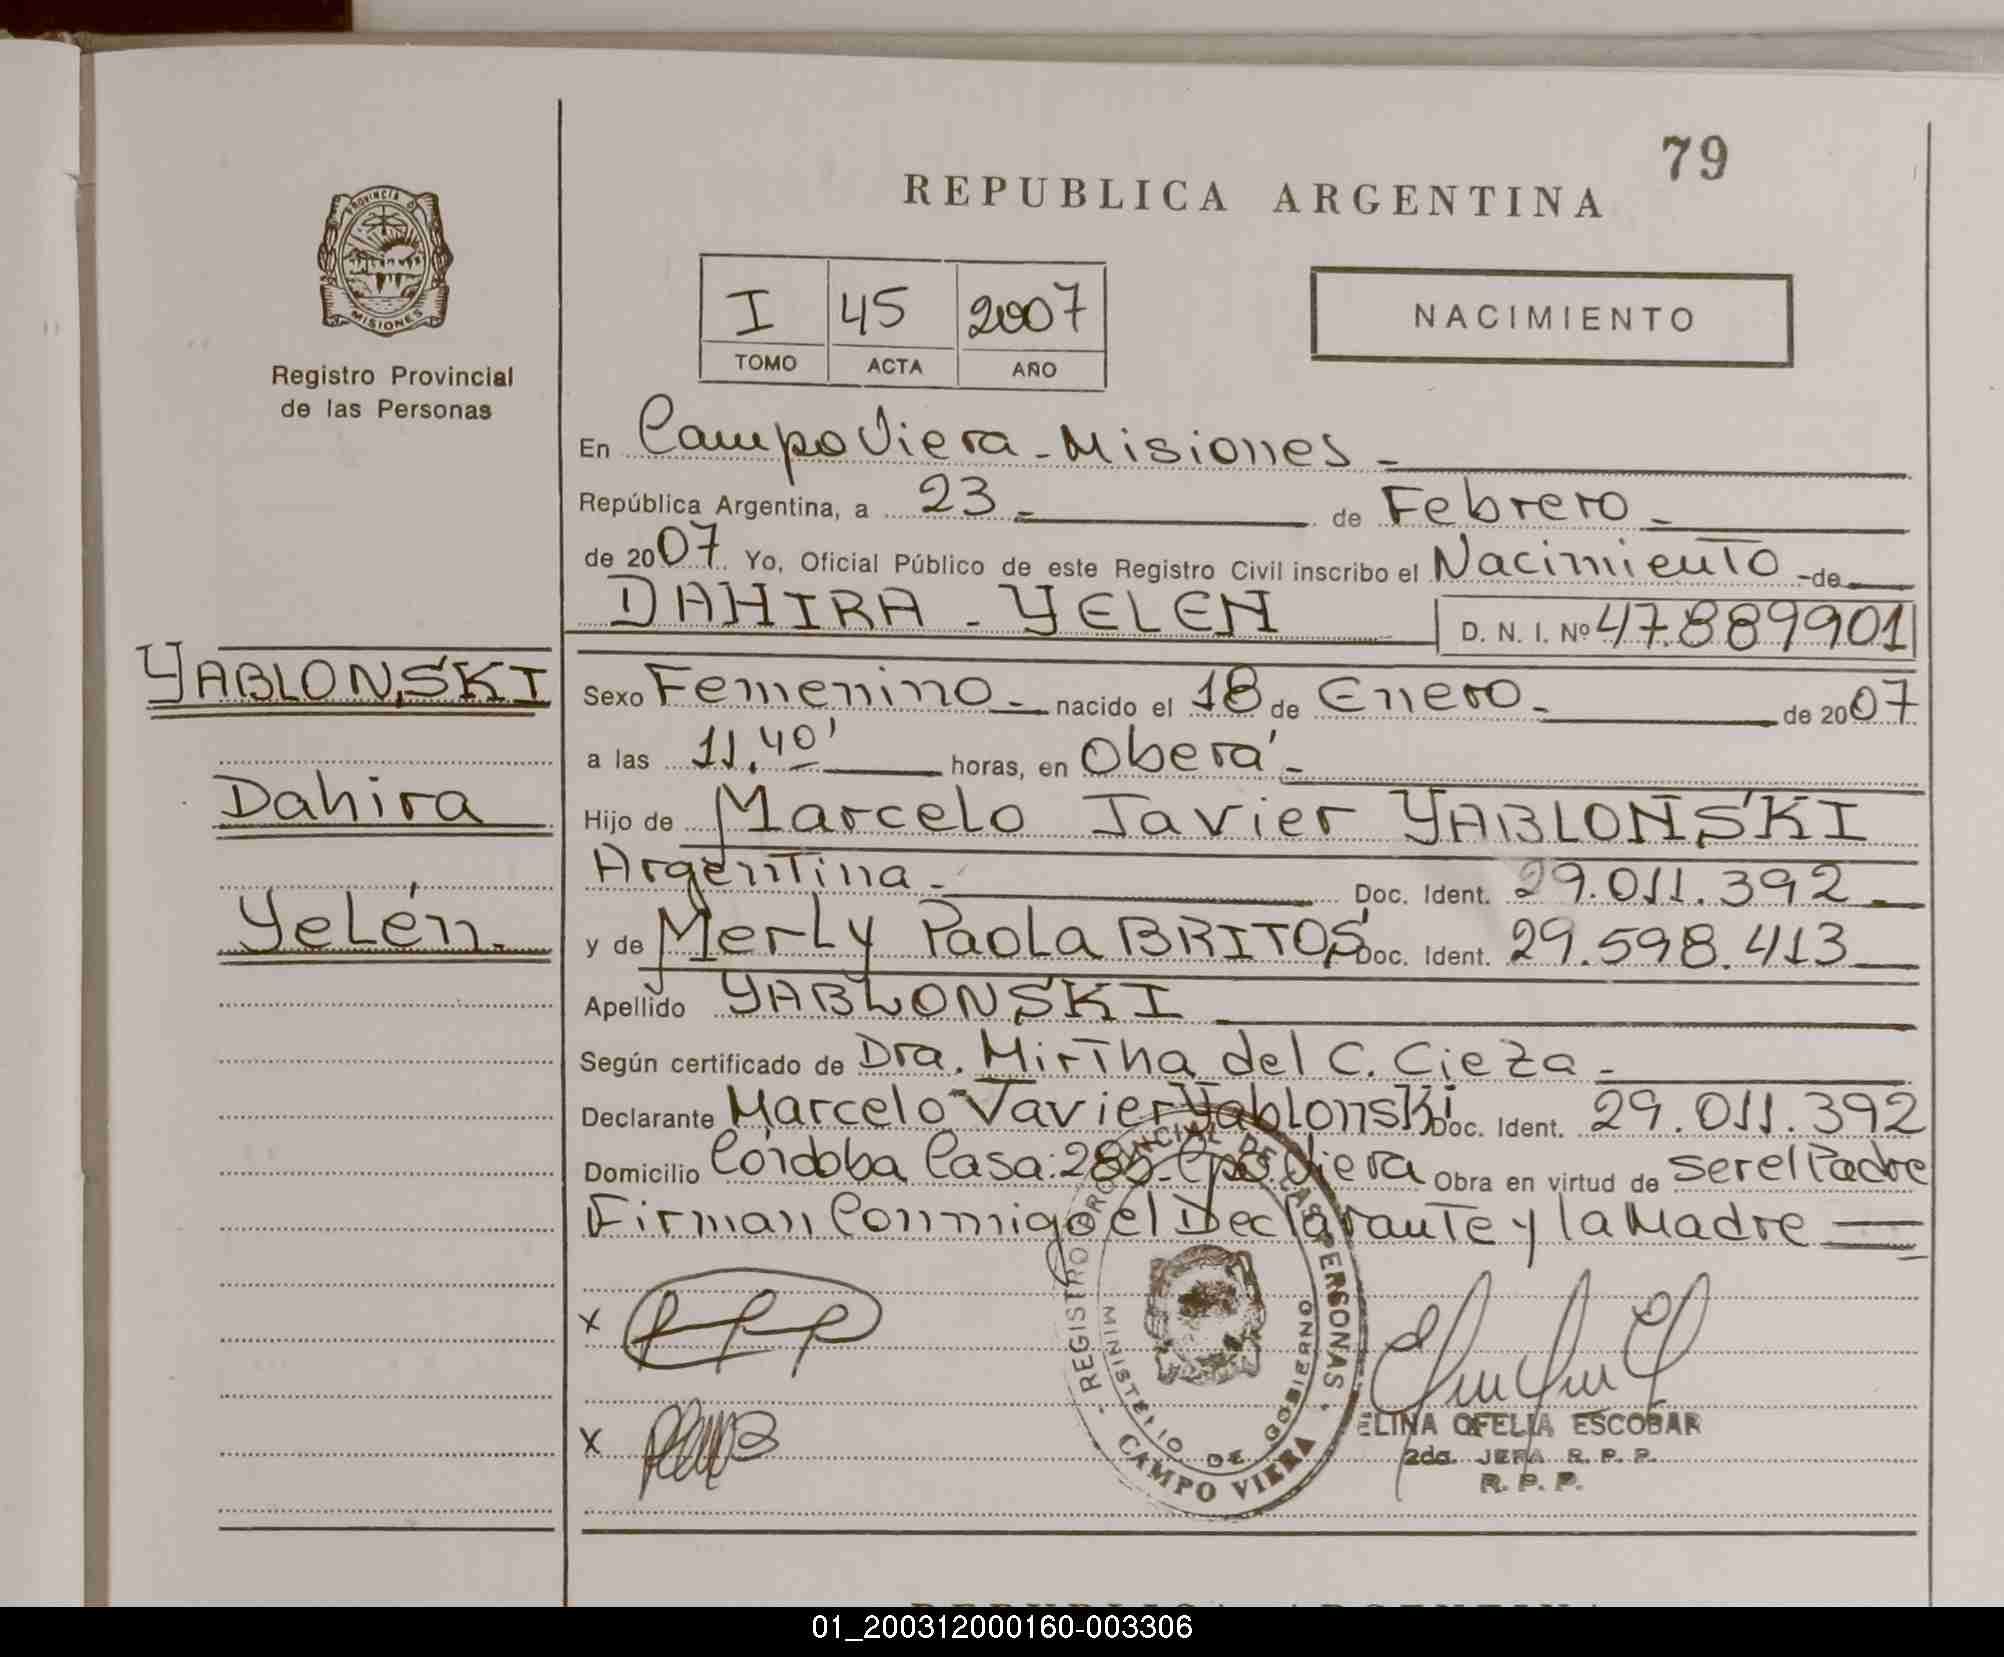 79
REPUBLICA ARGENTINA
PROVINCIA D
MISIONES
Registro Provincial
de las Personas
I 45 2007
TOMO ACTA AÑO
NACIMIENTO
En Campo Viera - Misiones -
República Argentina, a 23 - de Febrero -
de 2007 Yo, Oficial Público de este Registro Civil inscribo el Nacimiento - de
DAHIRA - YELEN D. N. I. Nº 47.889901
YABLONSKI
Dahira
Yelén.
Sexo Femenino - nacido el 18 de Enero - de 2007
a las 11.40' horas, en Oberá -
Hijo de Marcelo Javier YABLONSKI
Argentina - Doc. Ident. 29.011.392
y de Merly Paola BRITOS Doc. Ident. 29.598.413
Apellido YABLONSKI
Según certificado de Dra. Mirtha del C. Cieza -
Declarante Marcelo Javier Yablonski Doc. Ident. 29.011.392
Domicilio Córdoba Casa: 285 - Cpo. Viera Obra en virtud de ser el Padre
Firman Conmigo el Declarante y la Madre
x
x
- REGISTRO PROVINCIAL DE LAS PERSONAS -
MINISTERIO DE GOBIERNO
CAMPO VIERA
ELINA OFELIA ESCOBAR
2da. JEFA R. P. P.
R. P. P.
REPUBLICA ARGENTINA
01_200312000160-003306